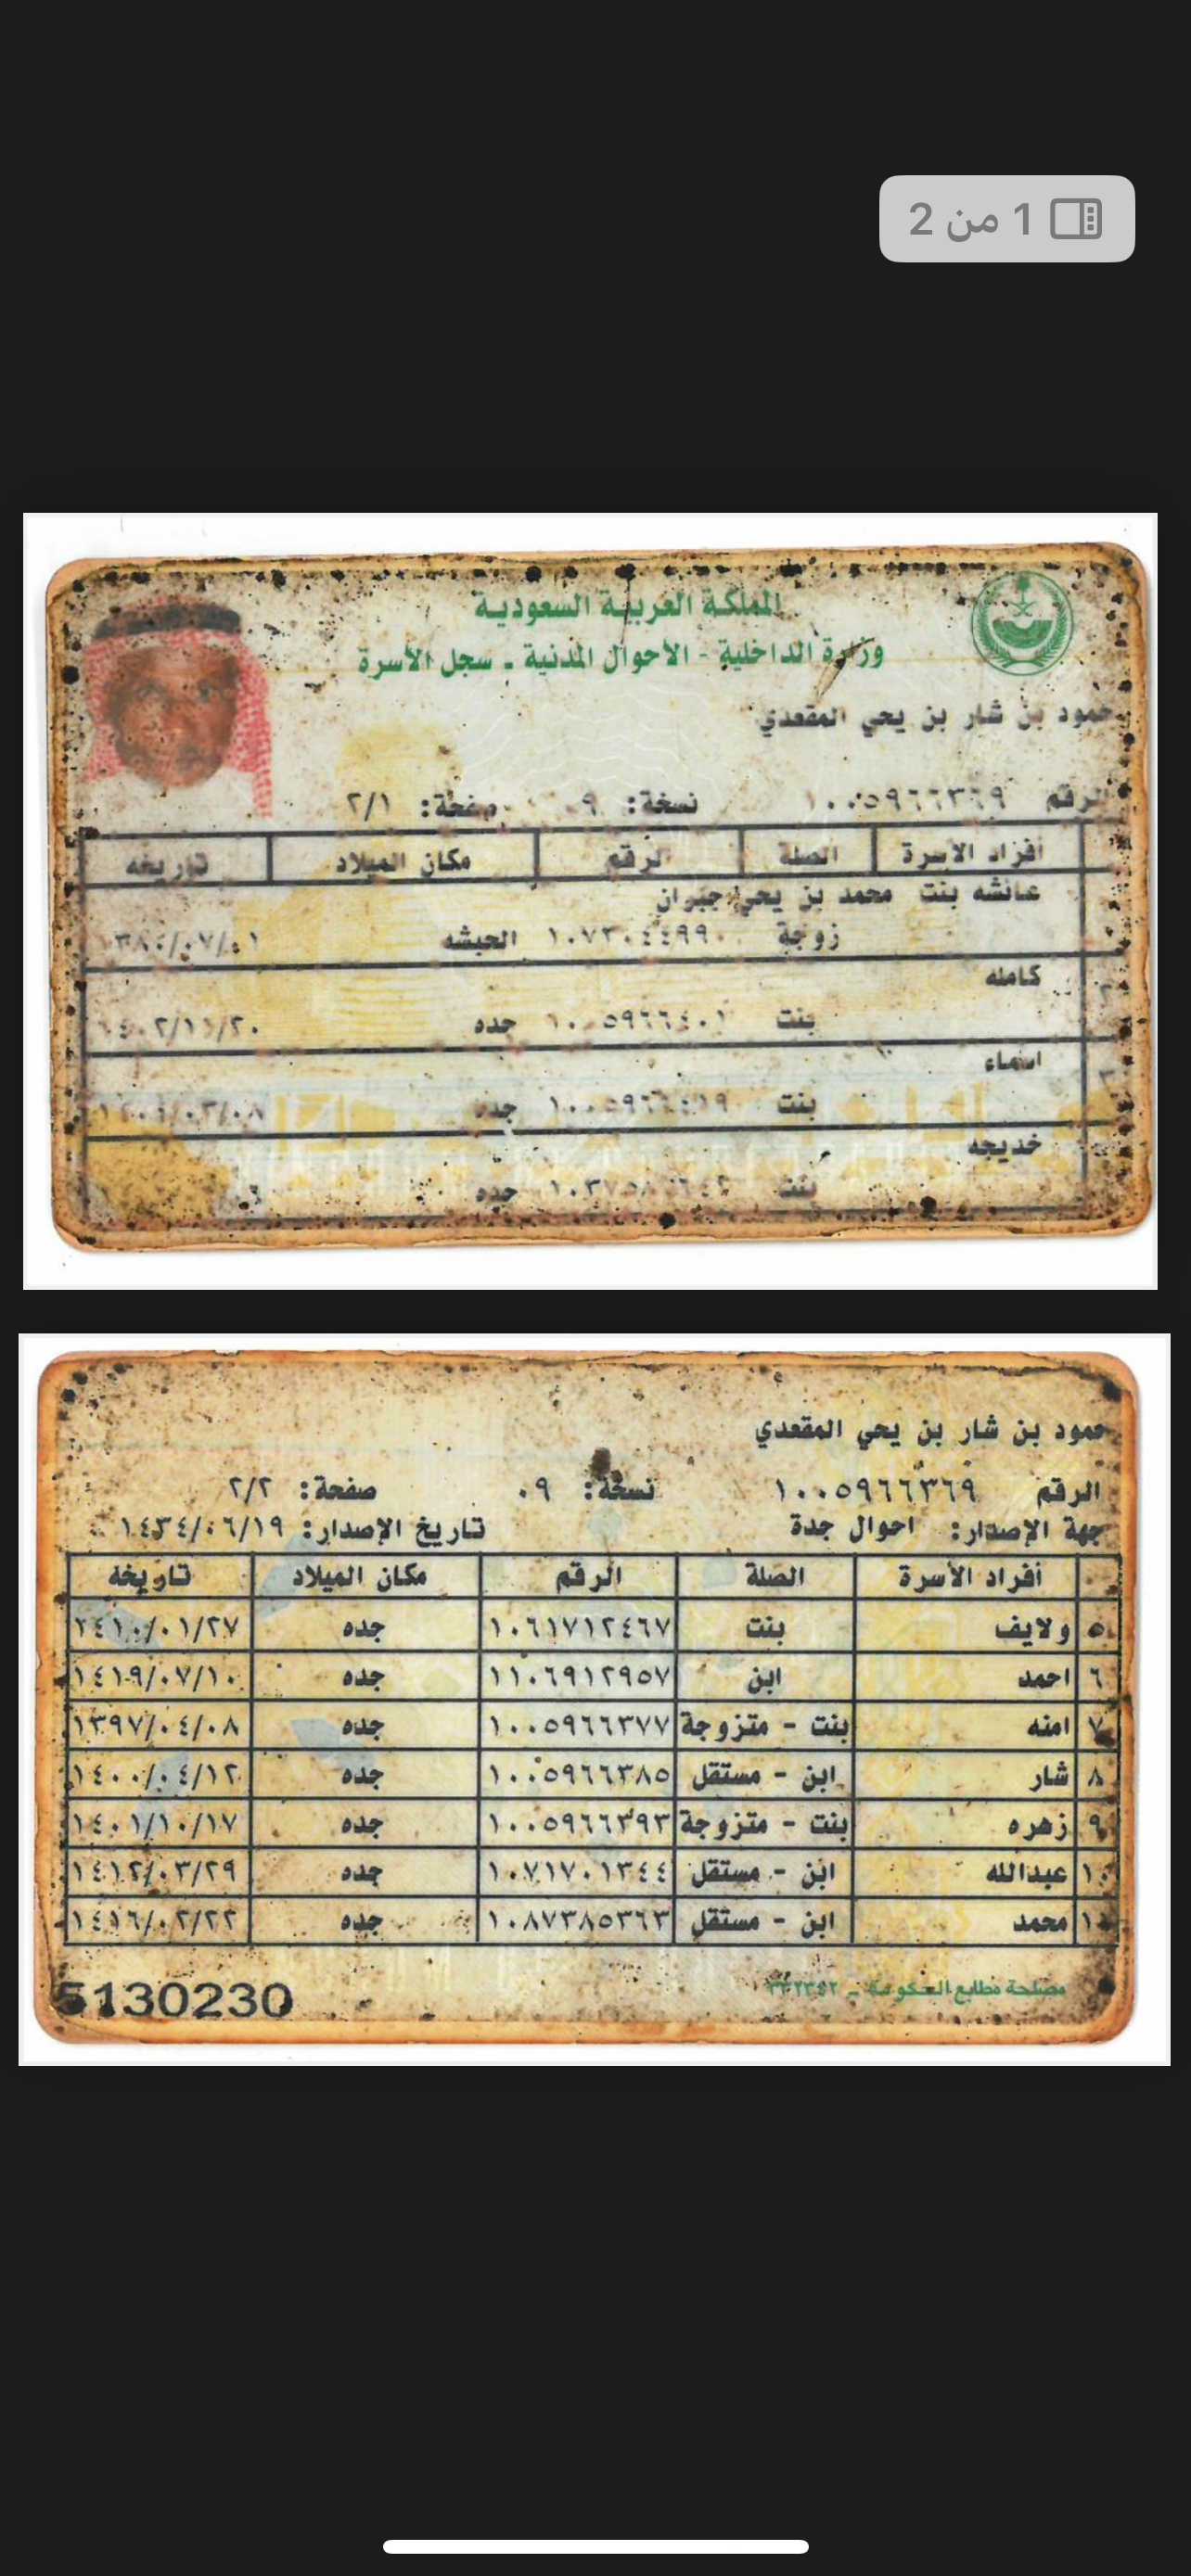 1 من 2
المملكة العربية السعودية
وزارة الداخلية - الأحوال المدنية - سجل الأسرة
حمود بن شار بن يحي المقعدي
الرقم ١٠٠٥٩٦٦٣٦٩ نسخة: ٠٩ صفحة: ٢/١
أفراد الأسرة الصلة الرقم مكان الميلاد تاريخه
عائشه بنت محمد بن يحي جبران
زوجة ١٠٧٣٠٤٤٩٩٠ الحبشه
كامله
بنت ١٠٠٥٩٦٦٤٠١ جده ١٤٠٢/١١/٢٠
اسماء
بنت ١٠٠٥٩٦٦٤١٩ جده
خديجه
بنت جده
حمود بن شار بن يحي المقعدي
الرقم ١٠٠٥٩٦٦٣٦٩ نسخة: ٠٩ صفحة: ٢/٢
جهة الإصدار: احوال جدة تاريخ الإصدار: ١٤٣٤/٠٦/١٩
أفراد الأسرة الصلة الرقم مكان الميلاد تاريخه
٥ ولايف بنت ١٠٦١٧١٢٤٦٧ جده ١٤١٠/٠١/٢٧
٦ احمد ابن ١١٠٦٩١٢٩٥٧ جده ١٤١٩/٠٧/١٠
٧ امنه بنت - متزوجة ١٠٠٥٩٦٦٣٧٧ جده ١٣٩٧/٠٤/٠٨
٨ شار ابن - مستقل ١٠٠٥٩٦٦٣٨٥ جده ١٤٠٠/٠٤/١٢
٩ زهره بنت - متزوجة ١٠٠٥٩٦٦٣٩٣ جده ١٤٠١/١٠/١٧
١٠ عبدالله ابن - مستقل ١٠٧١٧٠١٣٤٤ جده ١٤١٢/٠٣/٢٩
١١ محمد ابن - مستقل ١٠٨٧٣٨٥٣٦٣ جده ١٤١٦/٠٢/٢٢
مصلحة مطابع الحكومة -
5130230